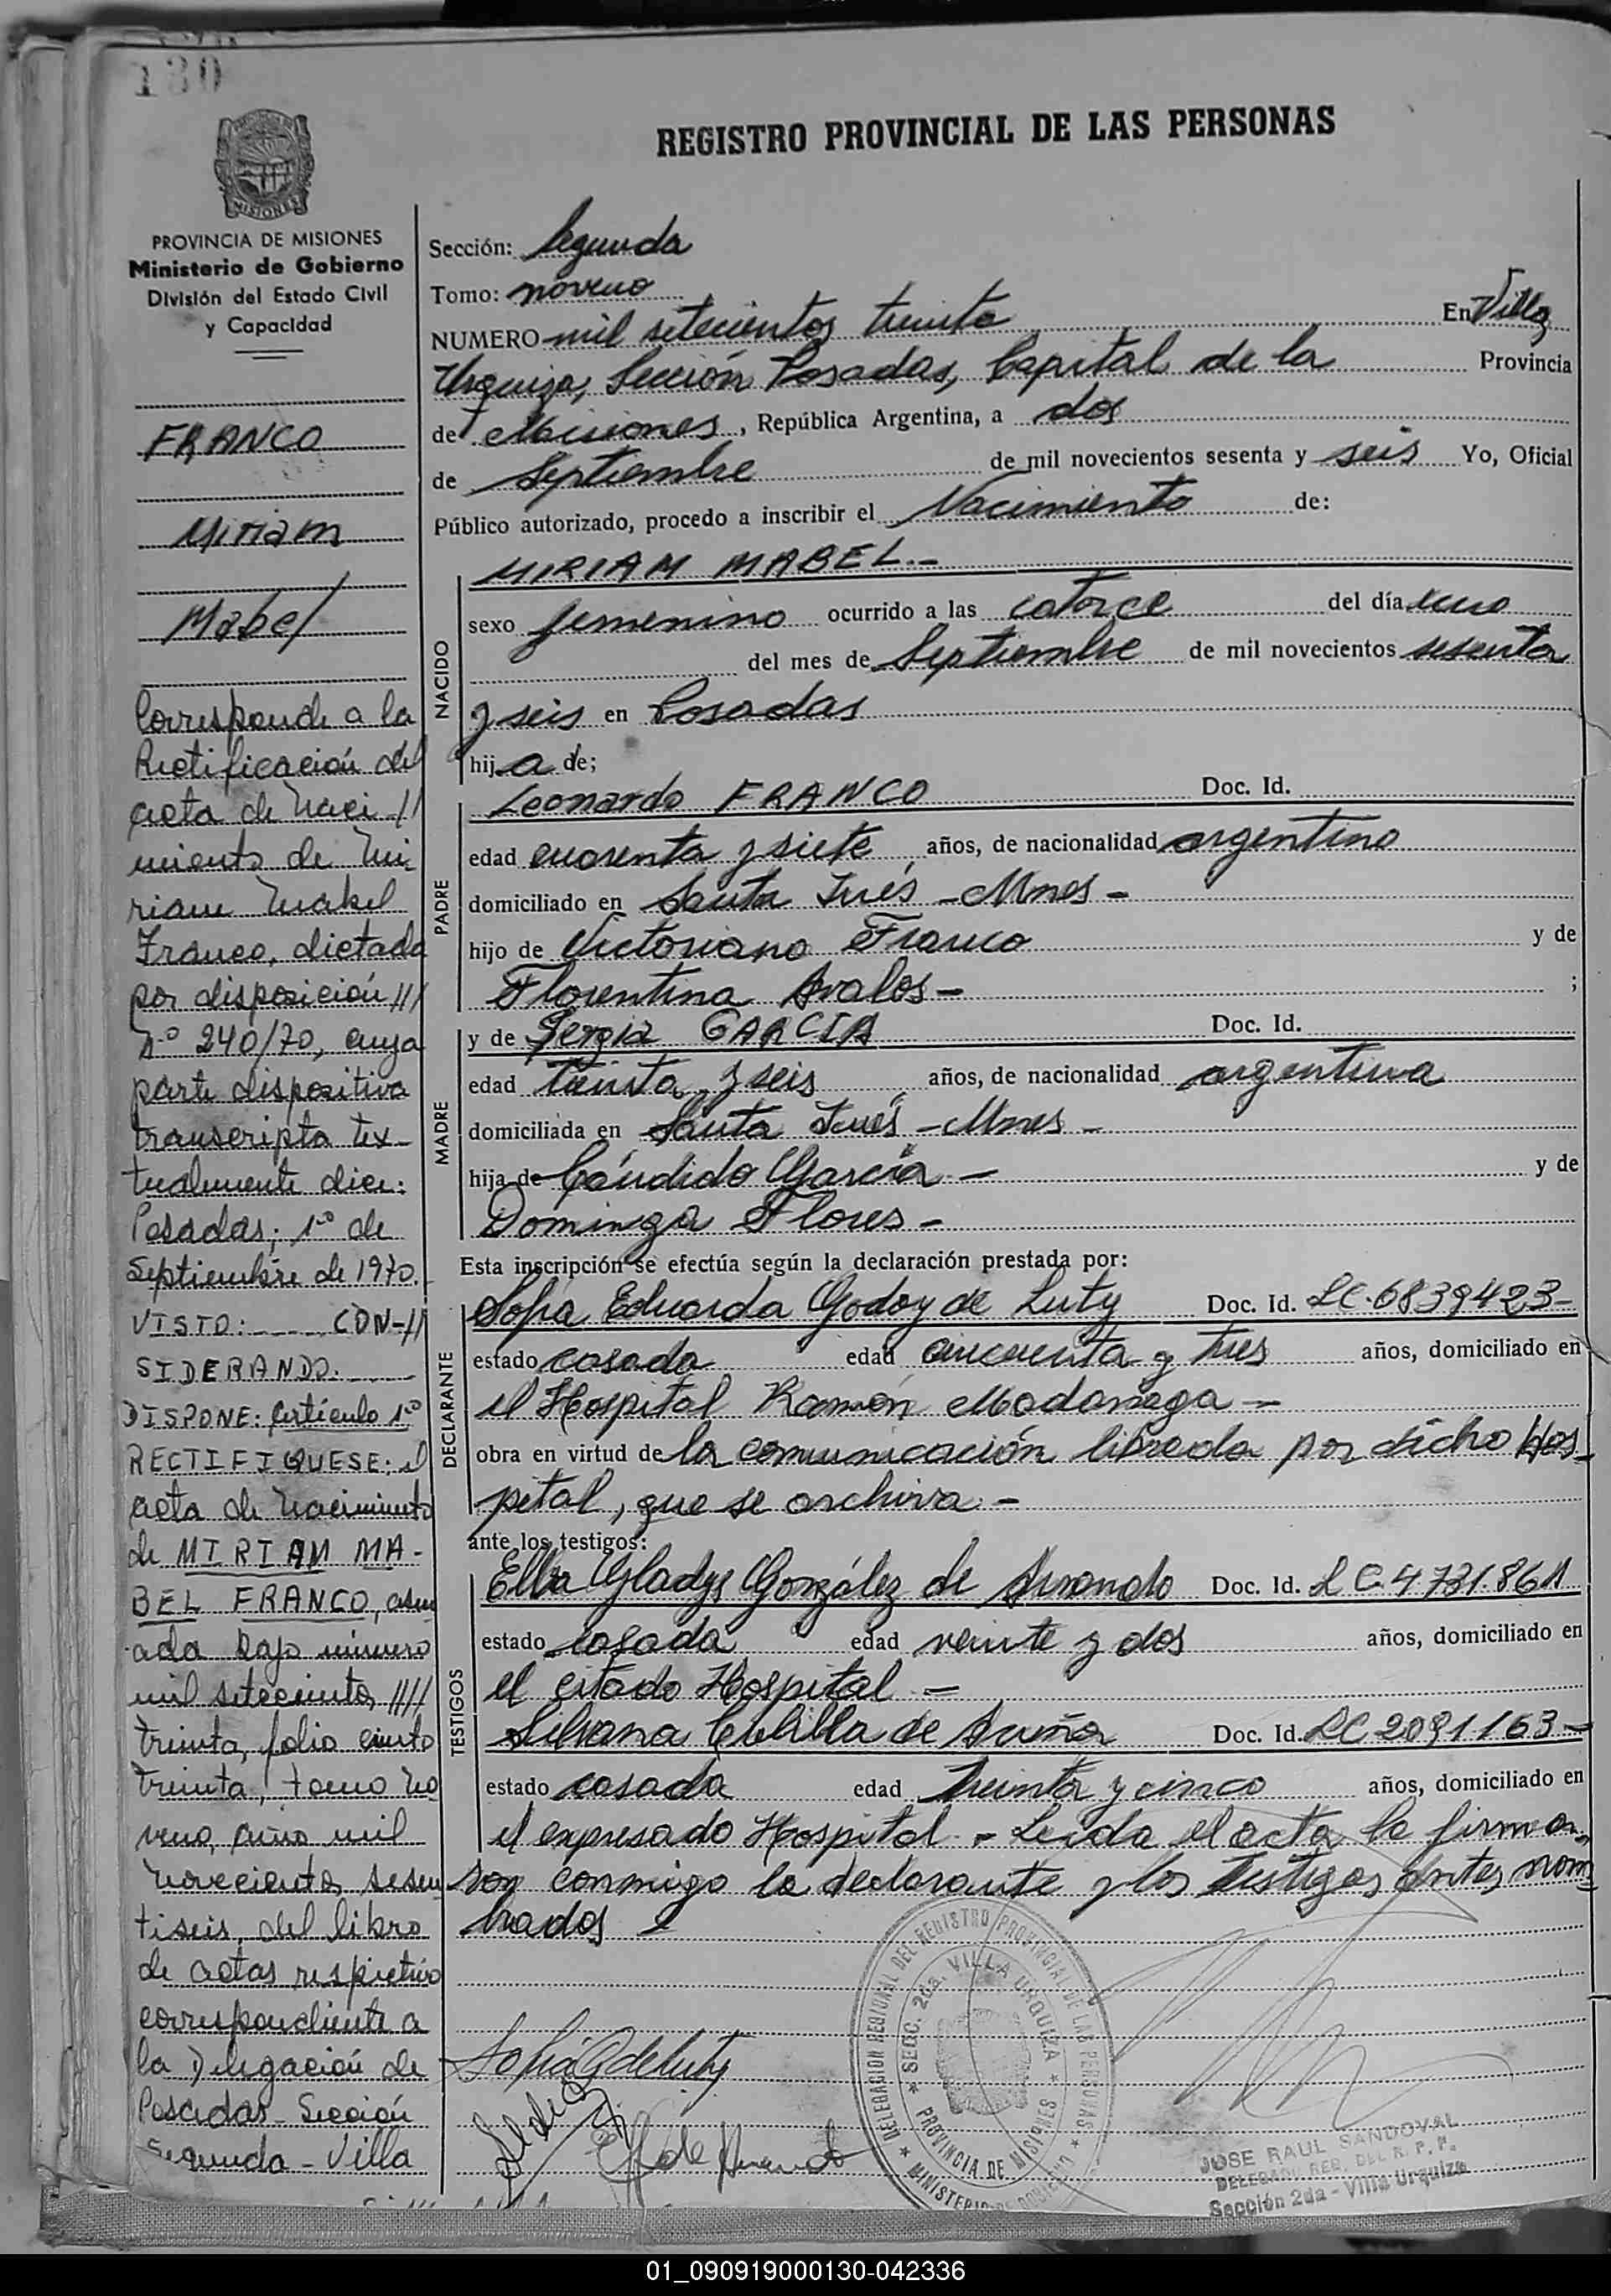 130
REGISTRO PROVINCIAL DE LAS PERSONAS
MISIONES
PROVINCIA DE MISIONES
Ministerio de Gobierno
División del Estado Civil
y Capacidad
FRANCO
Miriam
Mabel
Corresponde a la
Rectificación del
acta de Naci //
miento de Mi
riam Mabel
Franco, dictada
por disposición ///
Nº 240/70, cuya
parte dispositiva
transcripta tex-
tualmente dice:
Posadas; 1º de
Septiembre de 1970.
VISTO: ...... CON-//
SIDERANDO. ......
DISPONE: Artículo 1º
RECTIFIQUESE: el
acta de Nacimiento
de MIRIAM MA-
BEL FRANCO, asen
ada bajo número
mil setecientos ////
treinta, folio ciento
treinta, tomo no
veno, año mil
novecientos sesen
tiseis, del libro
de actas respectivo
correspondiente a
la Delegación de
Posadas - Sección
Segunda - Villa
Sección: Segunda
Tomo: noveno
NUMERO mil setecientos treinta En Villa
Urquiza, Sección Posadas, Capital de la Provincia
de Misiones, República Argentina, a dos
de Septiembre de mil novecientos sesenta y seis Yo, Oficial
Público autorizado, procedo a inscribir el Nacimiento de:
NACIDO
MIRIAM MABEL.-
sexo femenino ocurrido a las catorce del día uno
del mes de Septiembre de mil novecientos sesenta
y seis en Posadas
hija de;
PADRE
Leonardo FRANCO Doc. Id.
edad cuarenta y siete años, de nacionalidad argentino
domiciliado en Santa Inés - Mnes -
hijo de Victoriano Franco y de
Florentina Avalos - ;
MADRE
y de Sergia GARCIA Doc. Id.
edad treinta y seis años, de nacionalidad argentina
domiciliada en Santa Inés - Mnes -
hija de Cándido García - y de
Dominga Flores -
Esta inscripción se efectúa según la declaración prestada por:
DECLARANTE
Sofía Eduarda Godoy de Luty Doc. Id. LC. 6839423-
estado casada edad cincuenta y tres años, domiciliado en
el Hospital Ramón Madariaga -
obra en virtud de la comunicación librada por dicho Hos-
pital, que se archiva. -
ante los testigos:
TESTIGOS
Elba Gladys González de Doc. Id. LC. 4.731.861
estado casada edad veinte y dos años, domiciliado en
el citado Hospital -
Silvana de Acuña Doc. Id. LC 2091163 -
estado casada edad treinta y cinco años, domiciliado en
el expresado Hospital - Leída el acta la firma-
ron conmigo la declarante y los testigos antes nom
brados
Sofía G de Luty
DELEGACION REGIONAL DEL REGISTRO PROVINCIAL DE LAS PERSONAS
SECC. 2da. VILLA URQUIZA
PROVINCIA DE MISIONES
MINISTERIO DE GOBIERNO
JOSE RAUL SANDOVAL
DELEGADO REG. DEL R. P. P.
Sección 2da - Villa Urquiza
01_090919000130-042336